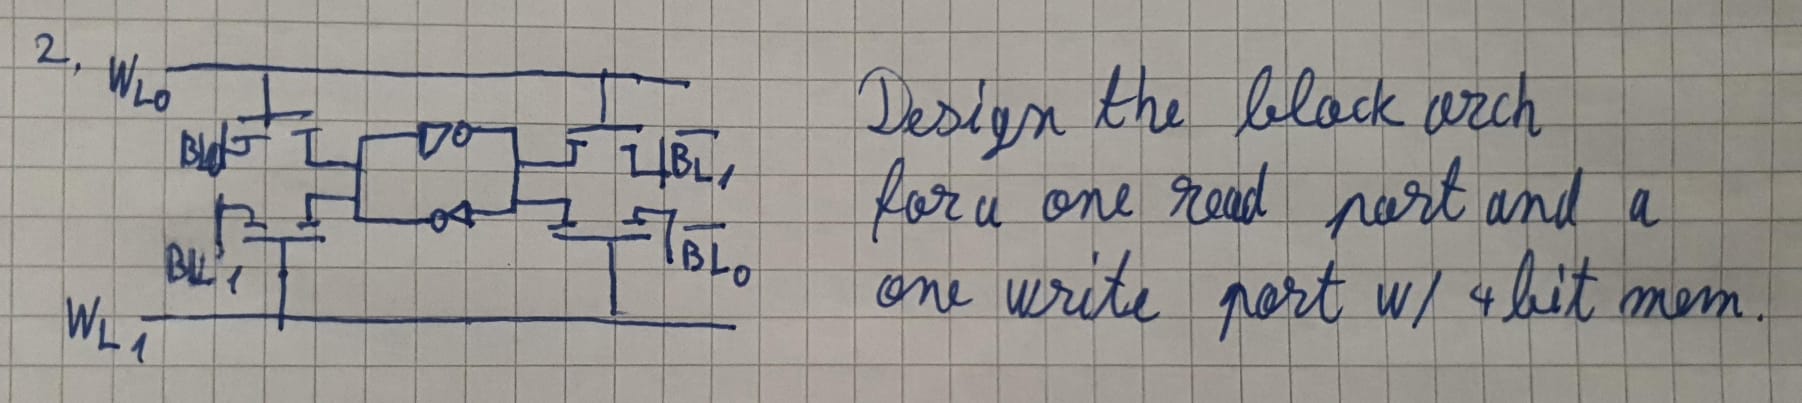 2.
WL0
BL0
BL1
WL1
B̅L̅1
B̅L̅0
Design the block arch
for a one read port and a
one write port w/ 4 bit mem.